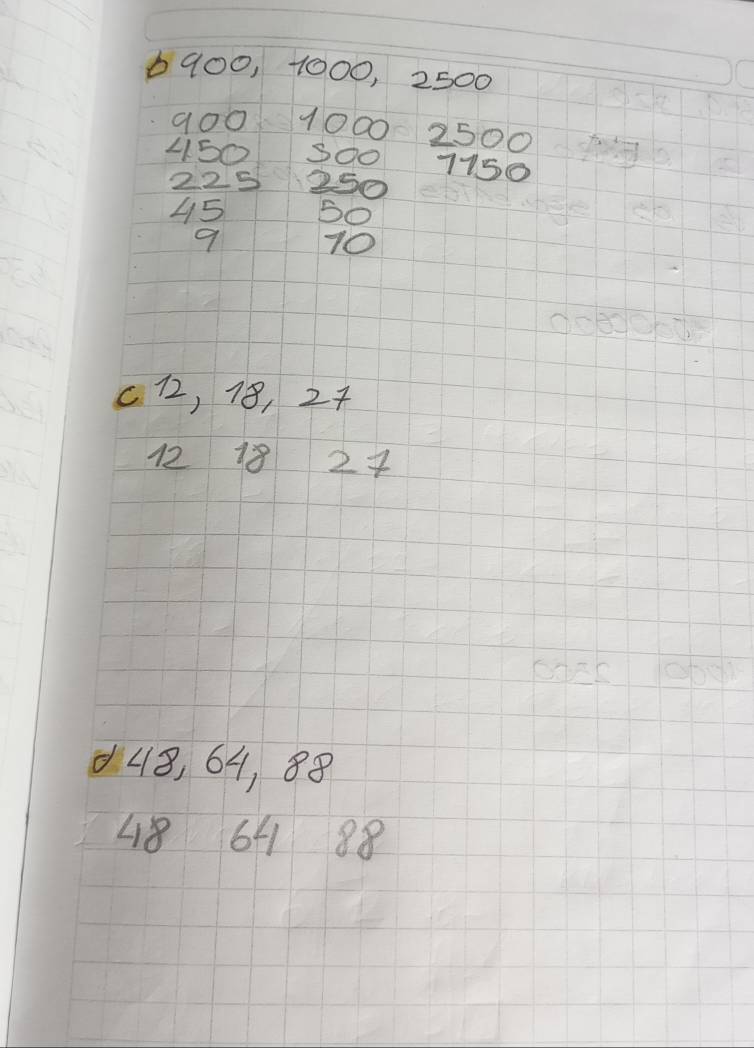 b 900, 1000, 2500
900 1000 2500
450 500 1150
225 250
45 50
9 10
c 12, 18, 27
12 18 27
d 48, 64, 88
48 64 88